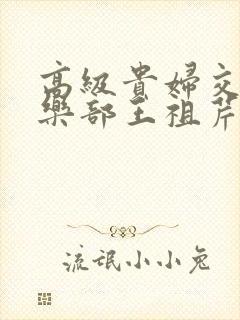 高級貴婦交
樂部王祖芹
流氓小小兔